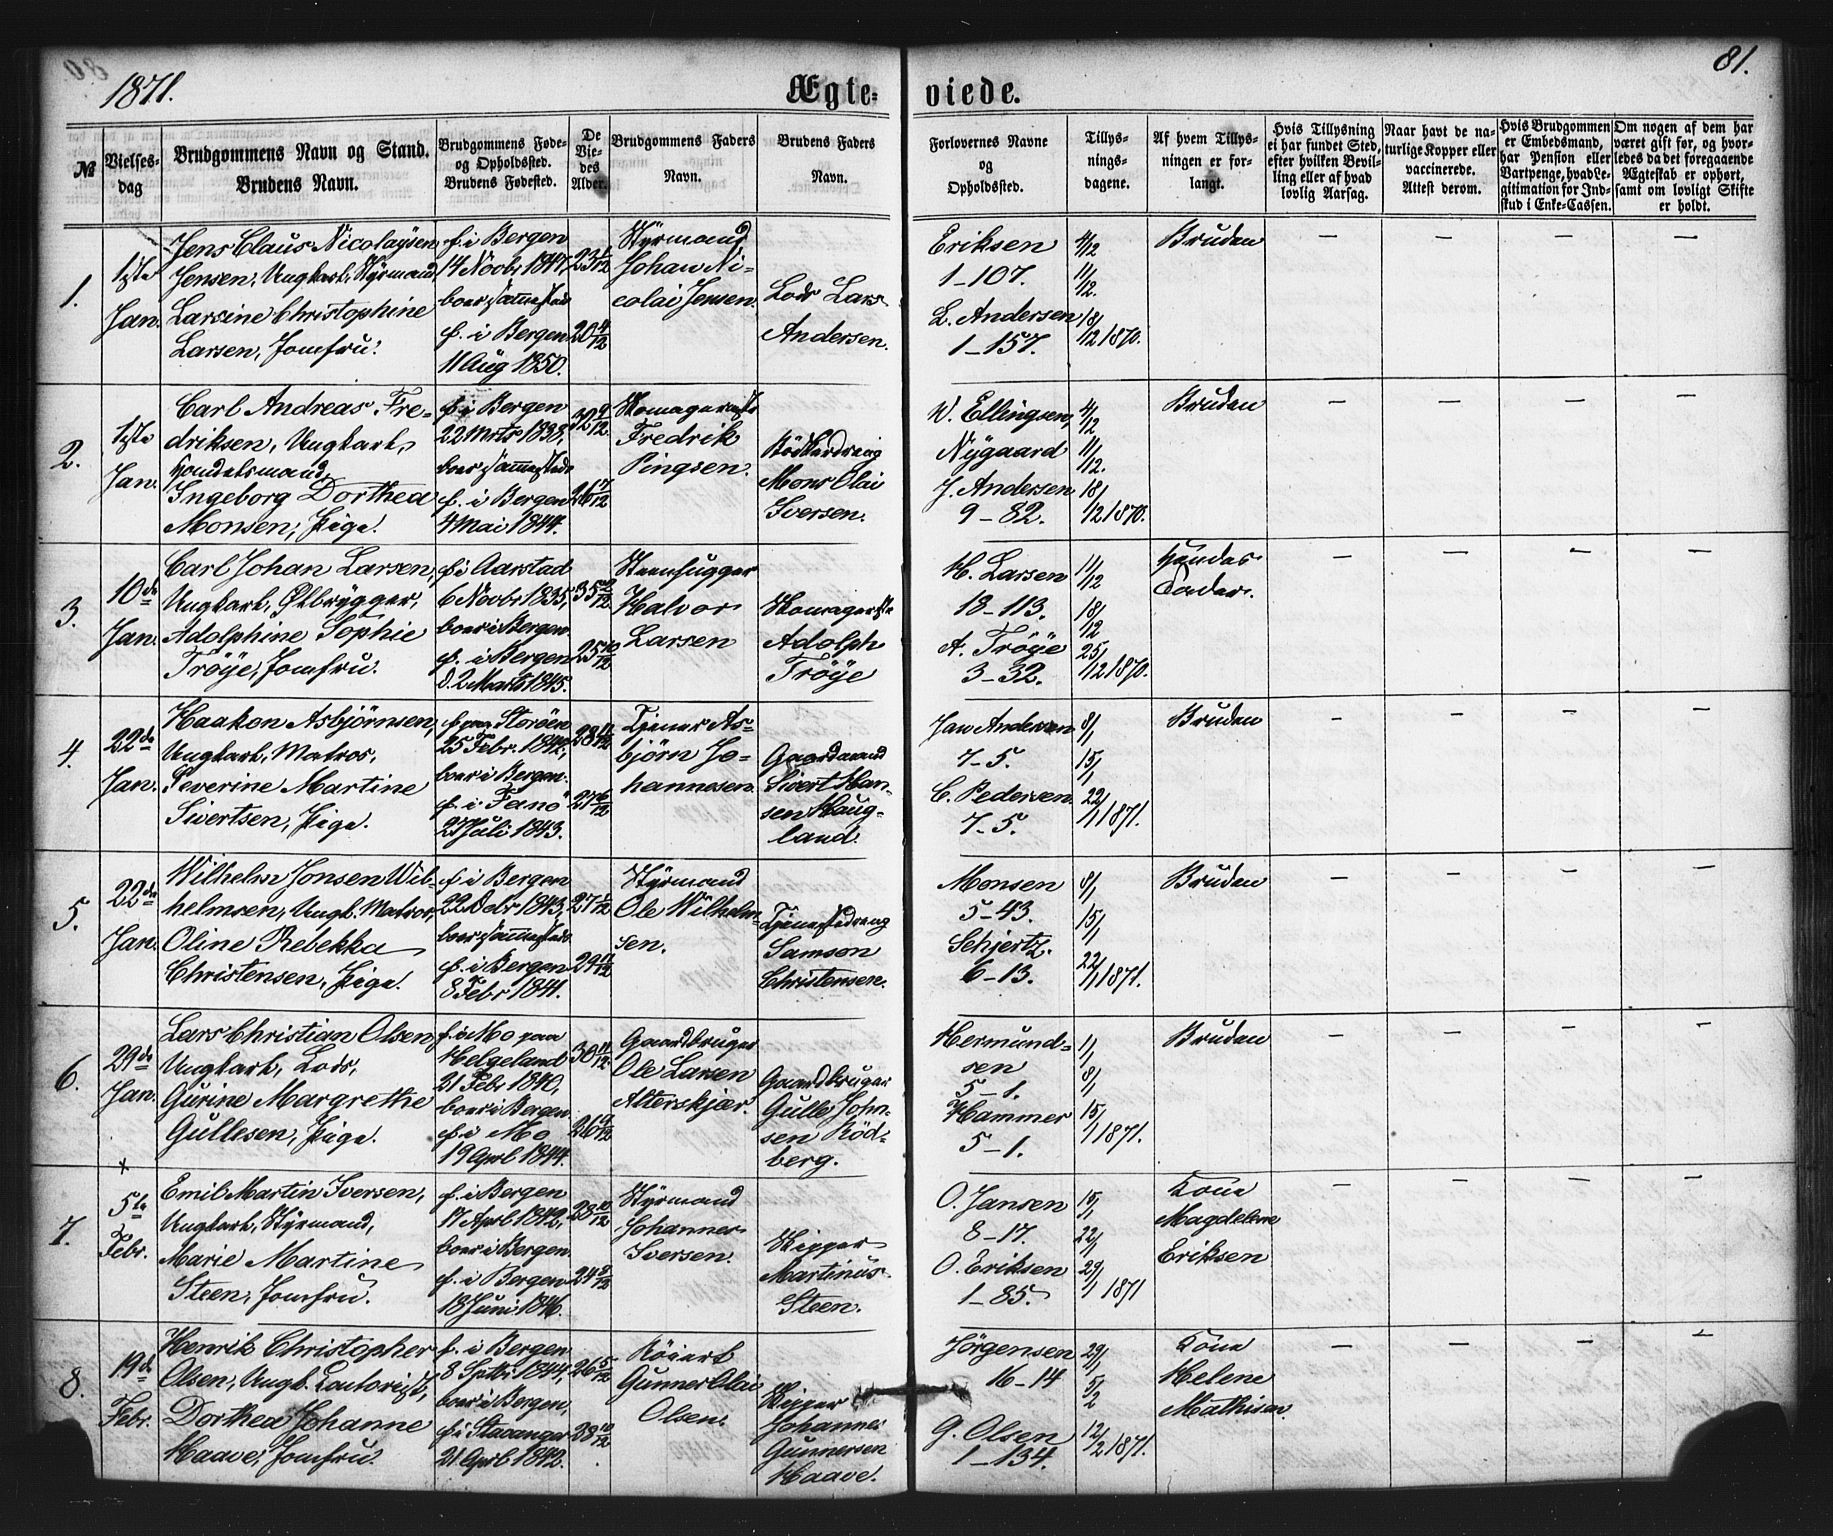 1871.
Ægte-
viede.
81.
№
Vielses-
dag
Brudgommens Navn og Stand.
Brudens Navn.
Brudgommens Føde-
og Opholdssted.
Brudens Fødested.
De
Vie-
des
Alder.
Brudgommens Faders
Navn.
Brudens Faders
Navn.
Forlovernes Navne
og
Opholdssted.
Tillys-
nings-
dagene.
Af hvem Tillys-
ningen er for-
langt.
Hvis Tillysning
ei har fundet Sted,
efter hvilken Bevil-
ling eller af hvad
lovlig Aarsag.
Naar havt de na-
turlige Kopper eller
vaccinerede.
Attest derom.
Hvis Brudgommen
er Embedsmand,
har Pension eller
Vartpenge, hvad Le-
gitimation for Ind-
skud i Enke-Cassen.
Om nogen af dem har
været gift før, og hvor-
ledes da det foregaaende
Ægteskab er ophørt,
samt om lovligt Skifte
er holdt.
1.
1ste
Jan.
Jens Claus Nicolaysen
Jensen, Ungkarl, Styrmand
Larsine Christophine
Larsen, Jomfru.
f. i Bergen
14 Novbr 1847,
boer sammesteds
f. i Bergen
11 Aug 1850.
23 1/12
20 4/12
Styrmand
Johan Ni-
colai Jensen.
Lods Lars
Andersen.
Eriksen
1-107.
L. Andersen
1-157.
4/12
11/12.
18/12 1870.
Bruden
— — — —
2.
1ste
Jan.
Carl Andreas Fre-
driksen, Ungkarl,
Handelsmand,
Ingeborg Dorthea
Monsen, Pige.
f. i Bergen
22 Mrts 1838,
boer sammesteds
f. i Bergen
4 Mai 1844.
32 9/12
26 7/12
Fredrik
Pingsen.
Mons Olai
Iversen.
W. Ellingsen,
Nygaard
J. Andersen
9-82.
4/12
11/12.
18/12 1870.
Bruden
— — — —
3.
10de
Jan.
Carl Johan Larsen,
Ungkarl, Ølbrygger,
Adolphine Sophie
Trøye, Jomfru.
f. i Aarstad
6 Novbr 1835,
boer i Bergen.
f. i Bergen
d. 2 Marts 1845.
35 2/12
25 10/12
Steenhugger
Halvor
Larsen
Adolph
Trøye
H. Larsen
18-113.
A. Trøye
3-32.
11/12
18/12
25/12 1870.
Fader.
— — — —
4.
22de
Jan.
Haakon Asbjørnsen,
Ungkarl, Matros,
Severine Martine
Sivertsen, Pige.
f. paa Storøen
25 Febr. 1842,
boer i Bergen.
f. i Fanø
27 Juli 1843.
28 11/12
27 6/12
Tjener As-
bjørn Jo-
hannesen.
Gaardmand
Sivert Han-
sen Haug-
land.
Jan Andersen
7-5.
C. Pedersen.
7-5.
8/1
15/1
22/1 1871.
Bruden
— — — —
5.
22de
Jan.
Wilhelm Jonsen Wil-
helmsen, Ungk. Matros,
Oline Rebekka
Christensen, Pige.
f. i Bergen
boer sammesteds
f. i Bergen
8 Febr 1841.
27 1/12
29 11/12
Styrmand
Ole Wilhelm-
sen.
Tjenestedreng
Samson
Christensen.
Monsen
5-43.
Schjertz.
6-13.
8/1
15/1
22/1 1871.
Bruden
— — — —
6.
29de
Jan.
Lars Christian Olsen,
Ungkarl, Lods,
Gurine Margrethe
Gullesen, Pige.
f. i Mo paa
Helgeland
21 Febr 1840,
boer i Bergen
f. i Mo
19 Aprl 1844.
30 11/12
Gaardbruger
Ole Larsen
Alterskjær.
Gaardbruger
Gulle John-
sen Rød-
berg.
Hermund-
sen
5-1.
Hammer
5-1.
1/1
8/1
15/1 1871.
Bruden
— — — —
x
7.
5te
Febr.
Emil Martin Iversen,
Ungkarl, Styrmand,
Marie Martine
Steen, Jomfru.
f. i Bergen
17 April 1842,
boer i Bergen
f. i Bergen
18 Juni 1846.
28 10/12
Styrmand
Johannes
Iversen.
Skipper
Martinus
Steen.
O. Jansen
8-17.
O. Eriksen
1-85.
15/1
22/1
29/1 1871
Magdelene
Eriksen
— — — —
8.
19de
Febr.
Henrik Christopher
Olsen, Ungk. Contorist,
Dorthea Johanne
Haave, Jomfru.
f. i Bergen
8 Sptbr 1844,
boer i Bergen,
f. i Stavanger
21 Aprl 1842.
26 5/12
28 10/12
Gunner Olai
Olsen.
Skipper
Johannes
Gunnersen
Haave.
Jörgensen
16-14
G. Olsen
1-134.
29/1
5/2
12/2 1871.
Helene
Mathisen.
— — — —